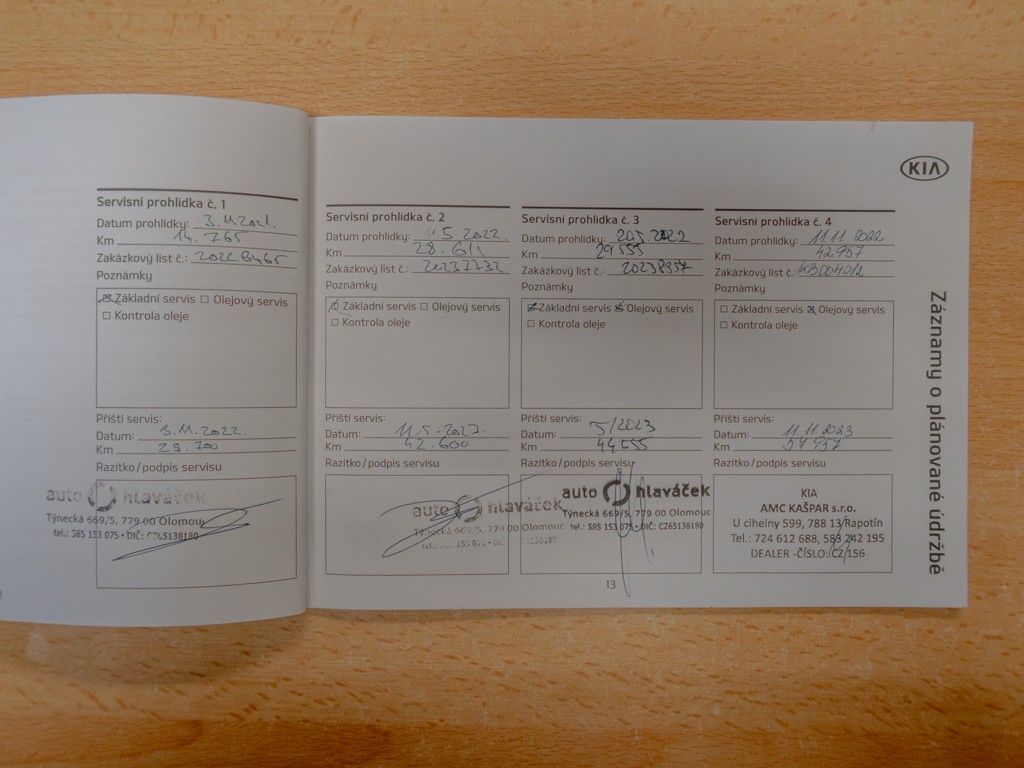 KIA
Záznamy o plánované údržbě
Servisní prohlídka č. 1
Datum prohlídky: 3.11.2021.
Km 14.765
Zakázkový list č.: 20228465
Poznámky
☒ Základní servis ☐ Olejový servis
☐ Kontrola oleje
Příští servis:
Datum: 3.11.2022.
Km 29.700
Razítko/podpis servisu
auto hlaváček
Týnecká 669/5, 779 00 Olomouc
tel.: 585 153 075 • DIČ: CZ65138180
Servisní prohlídka č. 2
Datum prohlídky: 11.5.2022.
Km 28.611
Zakázkový list č.: 20237732
Poznámky
☒ Základní servis ☐ Olejový servis
☐ Kontrola oleje
Příští servis:
Datum: 11.5.2023.
Km 42.600
Razítko/podpis servisu
auto hlaváček
Týnecká 669/5, 779 00 Olomouc
Servisní prohlídka č. 3
Datum prohlídky: 20.5.2022
Km 29555
Zakázkový list č.: 20238357
Poznámky
☒ Základní servis ☒ Olejový servis
☐ Kontrola oleje
Příští servis:
Datum: 5/2023
Km 44555
Razítko/podpis servisu
auto hlaváček
Týnecká 669/5, 779 00 Olomouc
tel.: 585 153 075 • DIČ: CZ65138180
13
Servisní prohlídka č. 4
Datum prohlídky: 11.11.2022
Km 42.957
Zakázkový list č.:
Poznámky
☐ Základní servis ☒ Olejový servis
☐ Kontrola oleje
Příští servis:
Datum: 11.11.2023
Km 57957
Razítko/podpis servisu
KIA
AMC KAŠPAR s.r.o.
U cihelny 599, 788 13 Rapotín
Tel.: 724 612 688, 583 242 195
DEALER -ČÍSLO: CZ 156